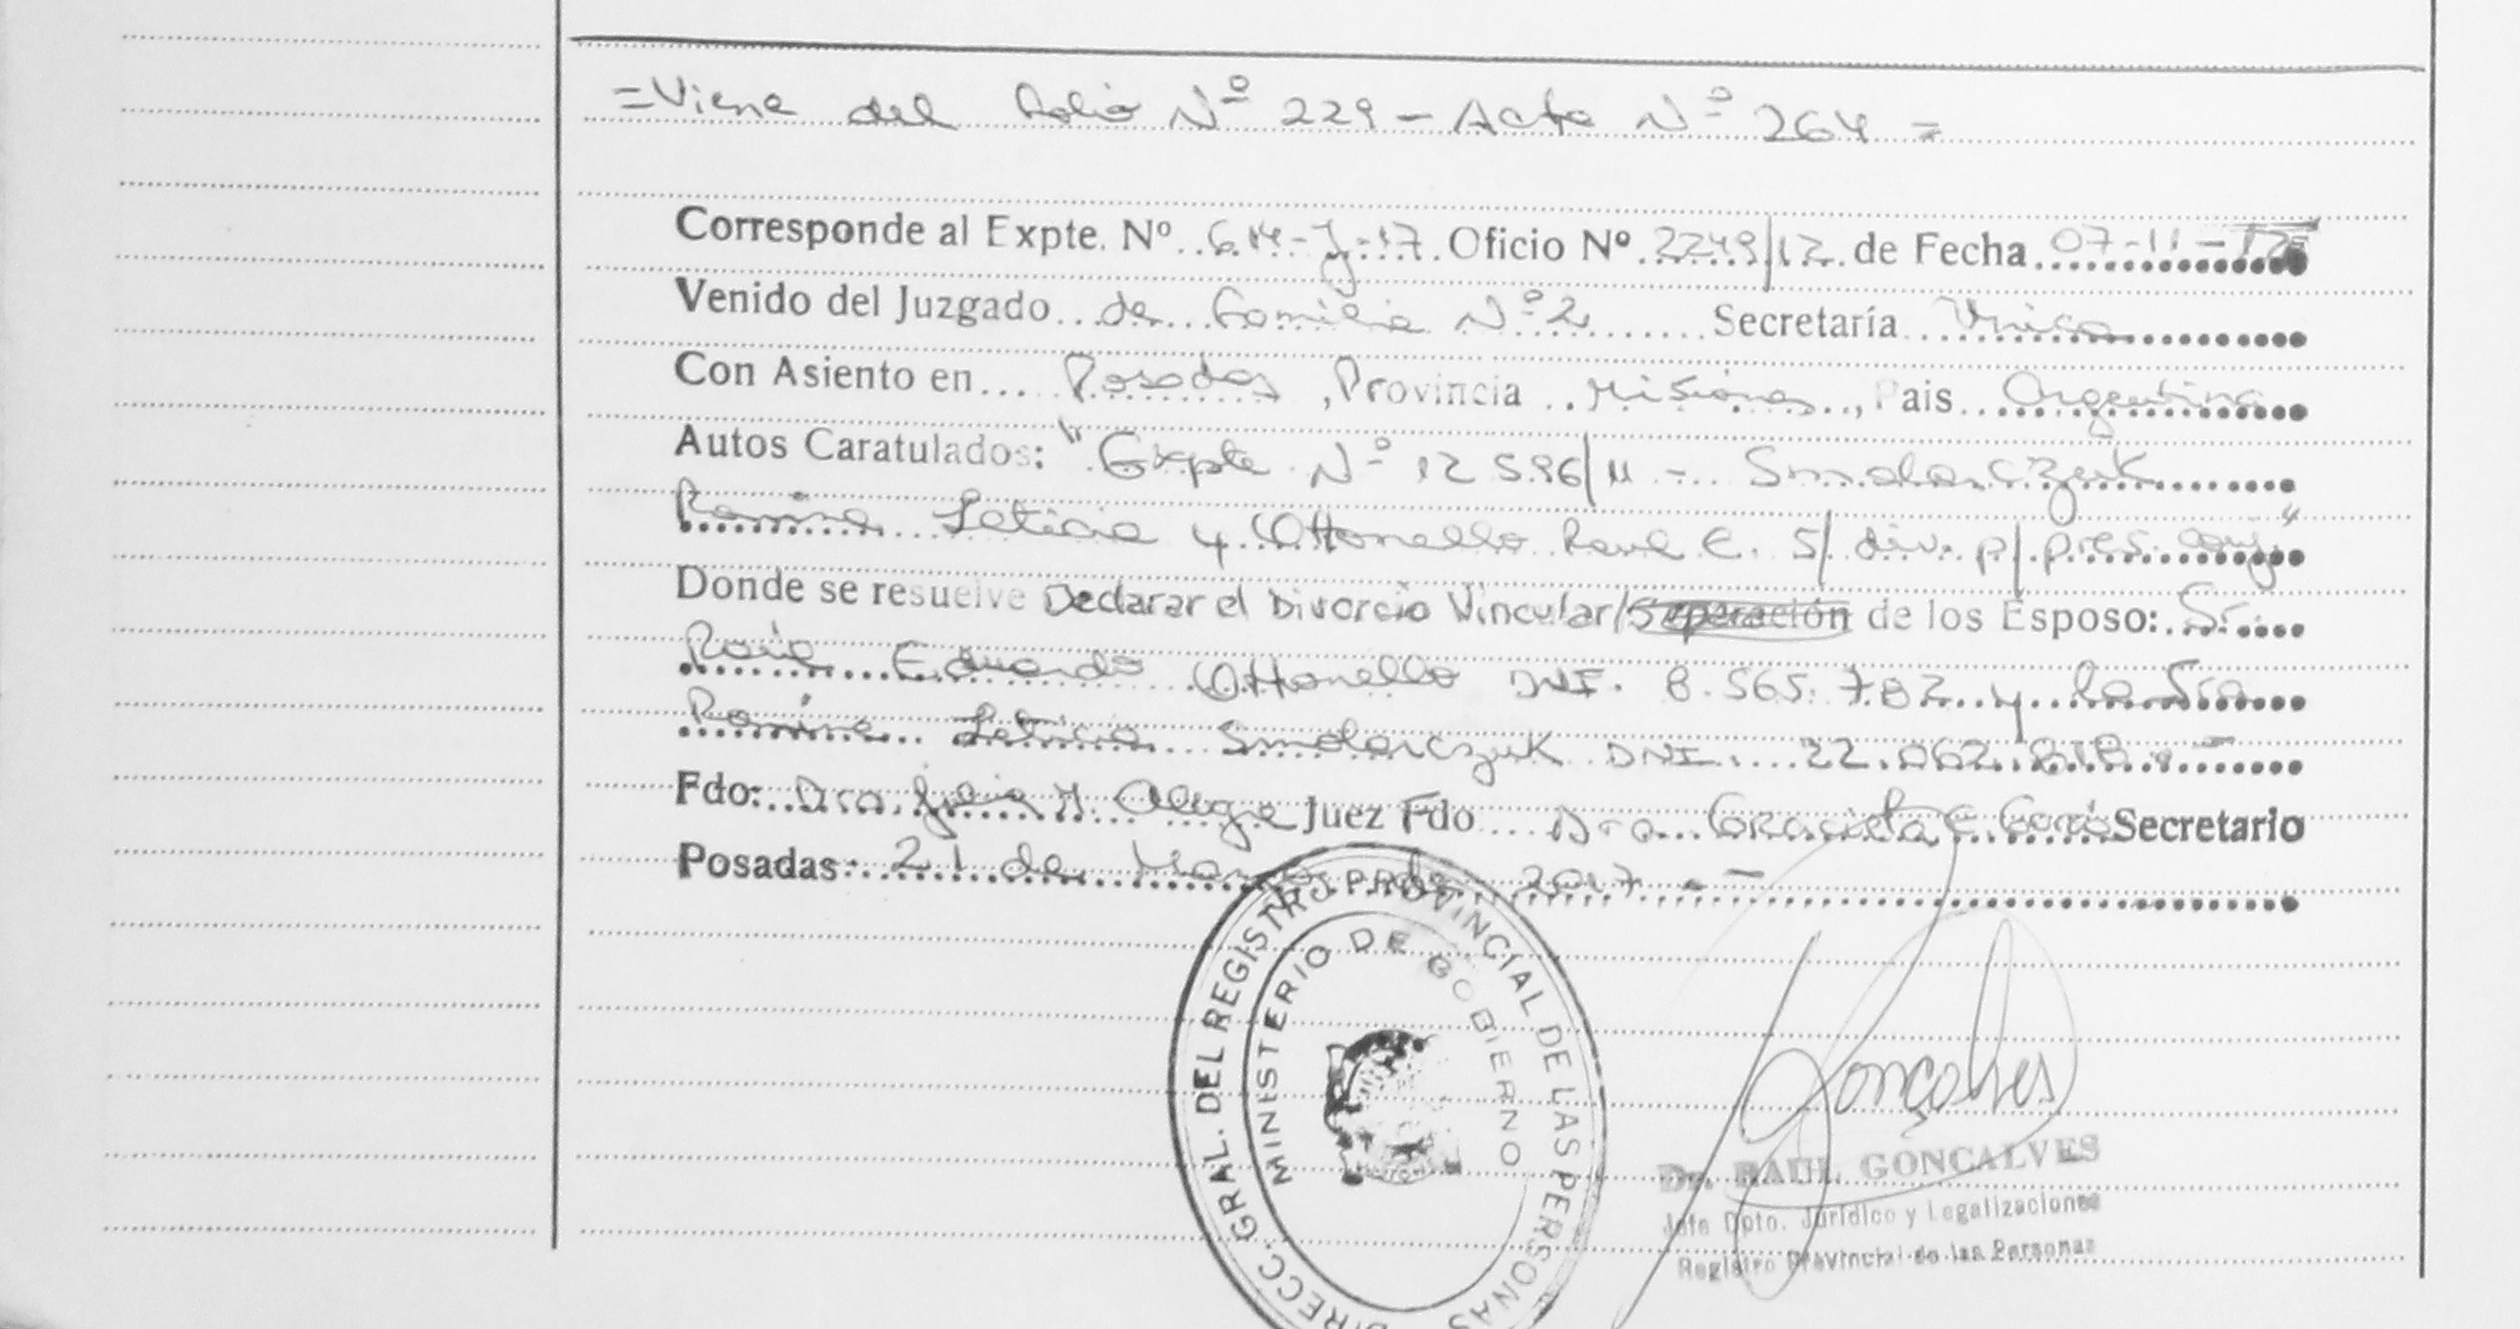 =Viene del Folio Nº 229 - Acta Nº 264 =
Corresponde al Expte. Nº 614-J-17 Oficio Nº 2249/12 de Fecha 07-11-12
Venido del Juzgado de Familia Nº 2 Secretaría Unica
Con Asiento en Posadas, Provincia Misiones, Pais Argentina
Autos Caratulados: "Expte Nº 12596/11 - Smolarczuk
Romina Leticia y Ottonello Raul E. s/ div. p/ pres. conj."
Donde se resuelve Declarar el Divorcio Vincular/Separación de los Esposo: Sr.
Raúl Eduardo Ottonello DNI. 8.565.782 y la Sra
Romina Leticia Smolarczuk DNI. 22.062.818.-
Fdo: Dra. M. Alegre Juez Fdo Dra. Graciela E. Secretario
Posadas: 21 de de 2017.-
DIRECC. GRAL. DEL REGISTRO PROVINCIAL DE LAS PERSONAS
MINISTERIO DE GOBIERNO
Gonçalves
Dr. RAUL GONÇALVES
Jefe Dpto. Jurídico y Legalizaciones
Registro Provincial de las Personas